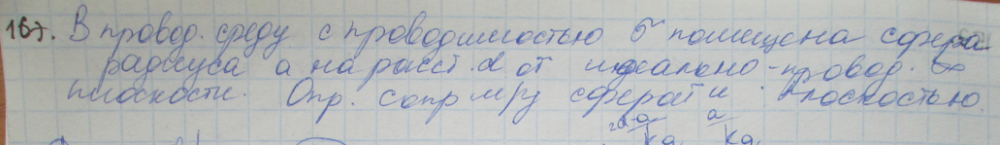 167. В провод. среду с проводимостью σ помещена сфера
радиуса a на расст. d от идеально-провод. ∞
плоскости. Опр. сопр м/у сферой и плоскостью.